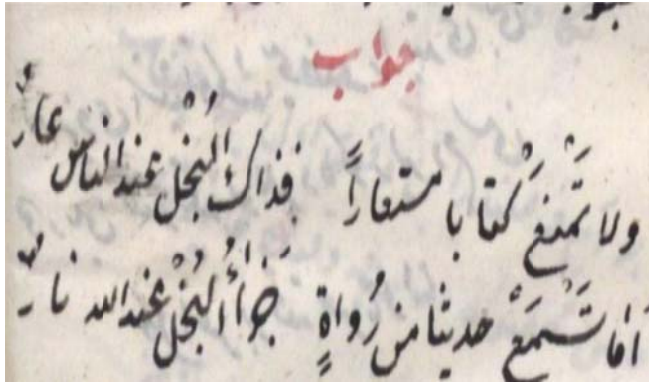 جواب
ولا تَمْنَعْ كتابا مستعاراً فذاك البُخْل عند الناس عارٌ
اما تَسْمَعْ حديثا من رُواةٍ جَزاءُ البُخْل عند الله نارٌ